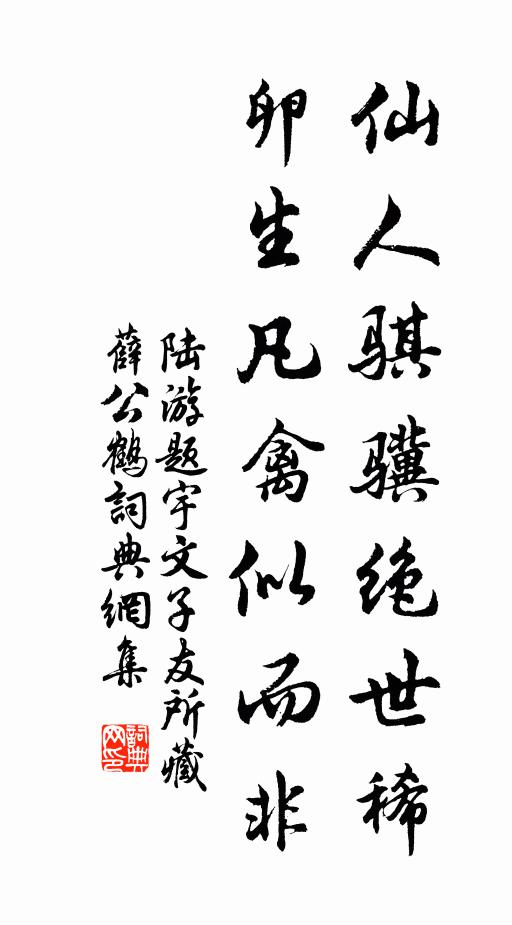 仙人骐骥绝世稀
卵生凡禽似而非
陆游题宇文子友所藏
薛公鹤詞典網集
詞典网印